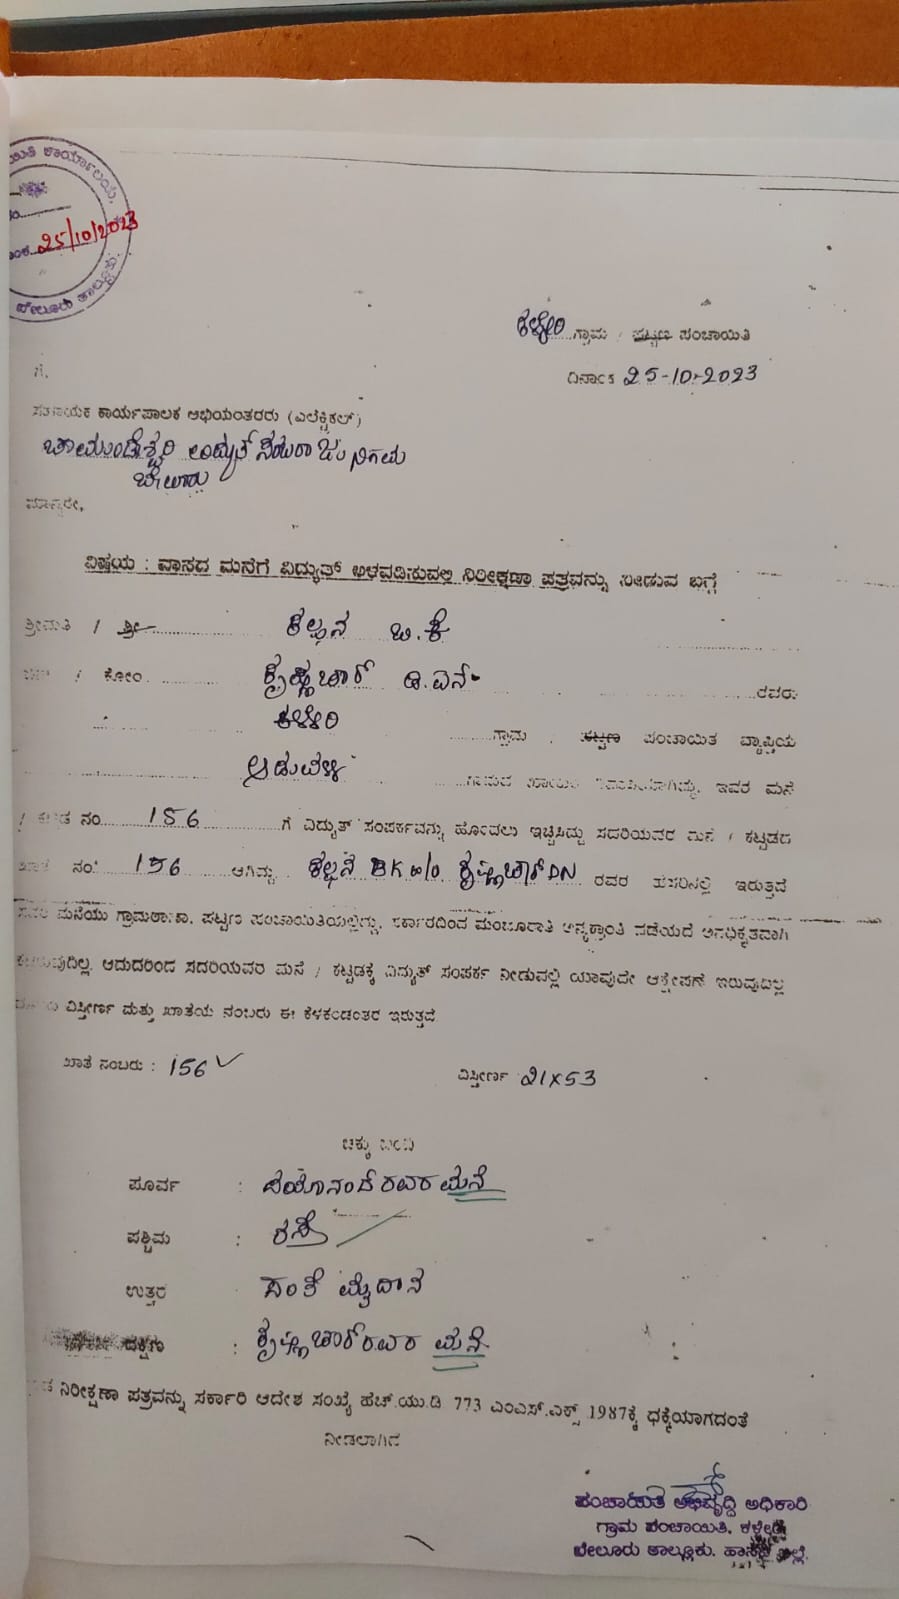 ಕಾರ್ಯಾಲಯ,
25/10/2023
ಬೇಲೂರು ತಾಲ್ಲೂಕು.
ಕಳ್ಳೇರಿ ಗ್ರಾಮ / ಪಟ್ಟಣ ಪಂಚಾಯಿತಿ
ದಿನಾಂಕ 25-10-2023
ಗೆ,
ಸಹಾಯಕ ಕಾರ್ಯಪಾಲಕ ಅಭಿಯಂತರರು (ಎಲೆಕ್ಟ್ರಿಕಲ್)
ಚಾಮುಂಡೇಶ್ವರಿ ನಿಗಮ
ಬೇಲೂರು
ಮಾನ್ಯರೇ,
ವಿಷಯ : ವಾಸದ ಮನೆಗೆ ವಿದ್ಯುತ್ ಅಳವಡಿಸುವಲ್ಲಿ ನಿರೀಕ್ಷಣಾ ಪತ್ರವನ್ನು ನೀಡುವ ಬಗ್ಗೆ
ಶ್ರೀಮತಿ / ಶ್ರೀ ಕಲ್ಪನ ಬಿ.ಕೆ
/ ಕೋಂ ಕೃಷ್ಣಚಾರ್ ಡಿ.ಎನ್ ರವರು
ಕಳ್ಳೇರಿ ಗ್ರಾಮ / ಪಟ್ಟಣ ಪಂಚಾಯಿತಿ ವ್ಯಾಪ್ತಿಯ
ಅಡುವಳ್ಳಿ ಇವರ ಮನೆ
/ ಕಟ್ಟಡ ನಂ 156 ಗೆ ವಿದ್ಯುತ್ ಸಂಪರ್ಕವನ್ನು ಹೊಂದಲು ಇಚ್ಚಿಸಿದ್ದು ಸದರಿಯವರ ಮನೆ / ಕಟ್ಟಡದ
ಖಾತೆ ನಂ 156 ಆಗಿದ್ದು ಕಲ್ಪನ BK w/o ಕೃಷ್ಣಚಾರ್ DN ರವರ ಹೆಸರಿನಲ್ಲಿ ಇರುತ್ತದೆ
ಸದರಿ ಮನೆಯು ಗ್ರಾಮಠಾಣಾ, ಪಟ್ಟಣ ಪಂಚಾಯಿತಿಯಲ್ಲಿದ್ದು, ಸರ್ಕಾರದಿಂದ ಮಂಜೂರಾತಿ ಅನ್ಯಕ್ರಾಂತಿ ಪಡೆಯದೆ ಅನಧಿಕೃತವಾಗಿ
ಆದುದರಿಂದ ಸದರಿಯವರ ಮನೆ / ಕಟ್ಟಡಕ್ಕೆ ವಿದ್ಯುತ್ ಸಂಪರ್ಕ ನೀಡುವಲ್ಲಿ ಯಾವುದೇ ಆಕ್ಷೇಪಣೆ ಇರುವುದಿಲ್ಲ
ವಿಸ್ತೀರ್ಣ ಮತ್ತು ಖಾತೆಯ ನಂಬರು ಈ ಕೆಳಕಂಡಂತರ ಇರುತ್ತದೆ
ಖಾತೆ ನಂಬರು : 156
ವಿಸ್ತೀರ್ಣ 21x53
ಚಕ್ಕು ಬಂದಿ
ಪೂರ್ವ : ದಯಾನಂದ ರವರ ಮನೆ
ಪಶ್ಚಿಮ : ರಸ್ತೆ
ಉತ್ತರ ಸಂತೆ ಮೈದಾನ
ದಕ್ಷಿಣ : ಕೃಷ್ಣಚಾರ್ ರವರ ಮನೆ
ನಿರೀಕ್ಷಣಾ ಪತ್ರವನ್ನು ಸರ್ಕಾರಿ ಆದೇಶ ಸಂಖ್ಯೆ ಹೆಚ್.ಯು.ಡಿ 773 ಎಂಎಸ್.ಎಕ್ಸ್ 1987ಕ್ಕೆ ಧಕ್ಕೆಯಾಗದಂತೆ
ನೀಡಲಾಗಿದೆ
ಪಂಚಾಯಿತಿ ಅಭಿವೃದ್ಧಿ ಅಧಿಕಾರಿ
ಗ್ರಾಮ ಪಂಚಾಯಿತಿ, ಕಳ್ಳೇರಿ
ಬೇಲೂರು ತಾಲ್ಲೂಕು. ಹಾಸನ ಜಿಲ್ಲೆ.